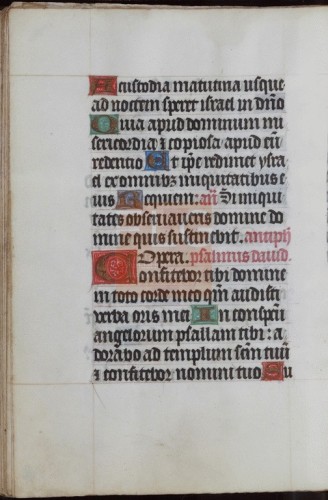 A custodia matutina usque
ad noctem speret israel in dño
Quia apud dominum mi
sericordia ⁊ copiosa apud eũ
redentio Et ip̃e redimet ysra
el ex omnibꝫ iniquitatibus e
ius Requiem: añ Si iniqui
tates observaveris domine do
mine quis sustinebit. antiph̃
Opera. psalmus david.
Confitebor tibi domine
in toto corde meo qm̃ audisti
verba oris mei In conspẽu
angelorum psallam tibi: a
dorabo ad templum sc̃m tuũ
⁊ confitebor nomini tuo Su